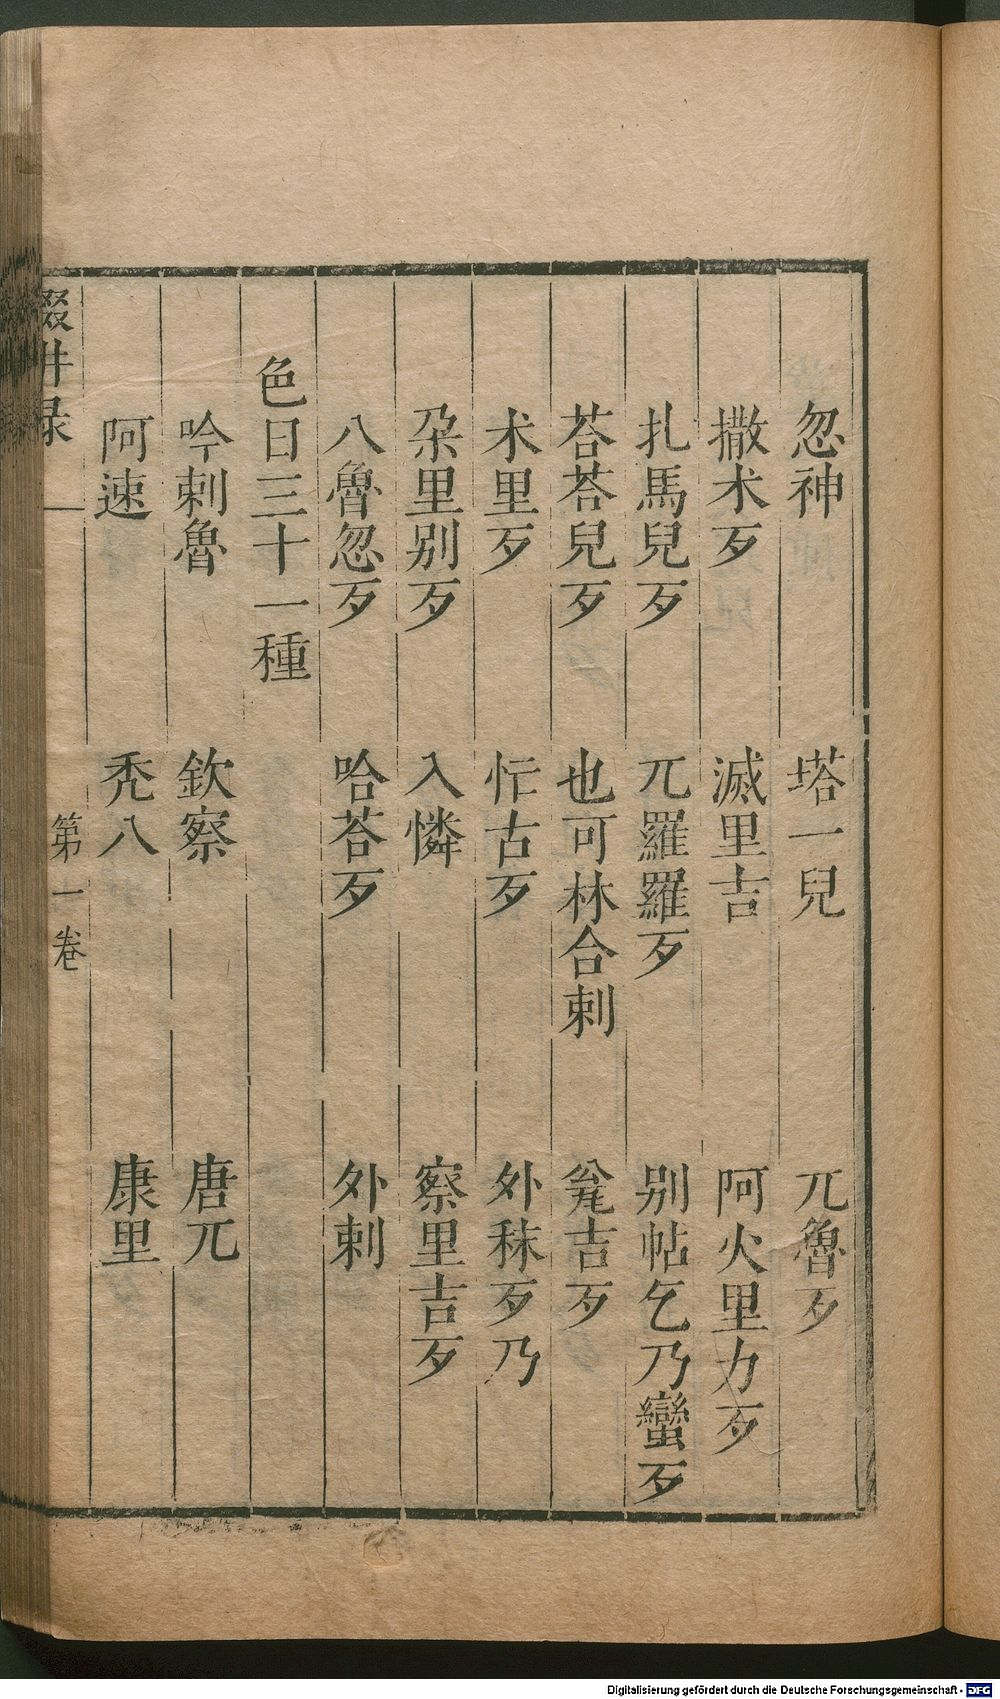 忽神 塔一兒 兀魯歹
撒术歹 滅里吉 阿火里力歹
扎馬兒歹 兀羅羅歹 别帖乞乃蠻歹
荅荅兒歹 也可林合剌 瓮吉歹
术里歹 忙古歹 外秣歹乃
朶里别歹 入憐 察里吉歹
八魯忽歹 哈荅歹 外剌
色目三十一種
哈剌魯 欽察 唐兀
阿速 禿八 康里
輟畊录 第一卷
Digitalisierung gefördert durch die Deutsche Forschungsgemeinschaft - DFG